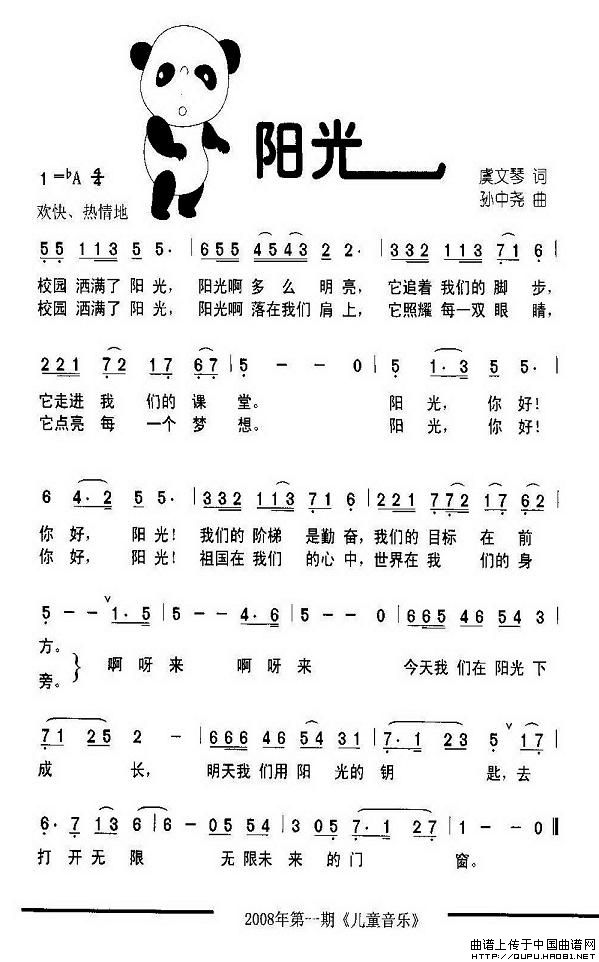 阳光
1=♭A 4/4
虞文琴 词
欢快、热情地
孙中尧 曲
5 5 1 1 3 5 5· | 6 5 5 4 5 4 3 2 2· | 3 3 2 1 1 3 7 1 6 |
校园 洒满了 阳 光， 阳光啊 多 么 明 亮， 它追着 我们的 脚 步，
校园 洒满了 阳 光， 阳光啊 落在我们 肩 上， 它照耀 每一双 眼 睛，
2 2 1 7 2 1 7 6 7 | 5 - - 0 | 5 1·3 5 5· |
它走进 我 们的 课 堂。 阳 光， 你 好！
它点亮 每 一个 梦 想。 阳 光， 你 好！
6 4·2 5 5· | 3 3 2 1 1 3 7 1 6 | 2 2 1 7 7 2 1 7 6 2 |
你 好， 阳 光！ 我们的 阶梯 是勤 奋，我们的 目标 在 前
你 好， 阳 光！ 祖国在 我们 的心 中，世界在 我 们的 身
5 - - 1·5 | 5 - - 4·6 | 5 - - 0 | 6 6 5 4 6 5 4 3 |
方。
旁。
啊 呀 来 啊 呀 来 今天我 们在 阳光 下
7 1 2 5 2 - | 6 6 6 4 6 5 4 3 1 | 7·1 2 3 5 1 7 |
成 长， 明天我 们用 阳 光的 钥 匙，去
6·7 1 3 6 | 6 - 0 5 5 4 | 3 0 5 7·1 2 7 | 1 - - 0 ‖
打 开无 限 无 限未 来 的门 窗。
2008年第一期《儿童音乐》
曲谱上传于中国曲谱网
HTTP://QUPU.HAO81.NET